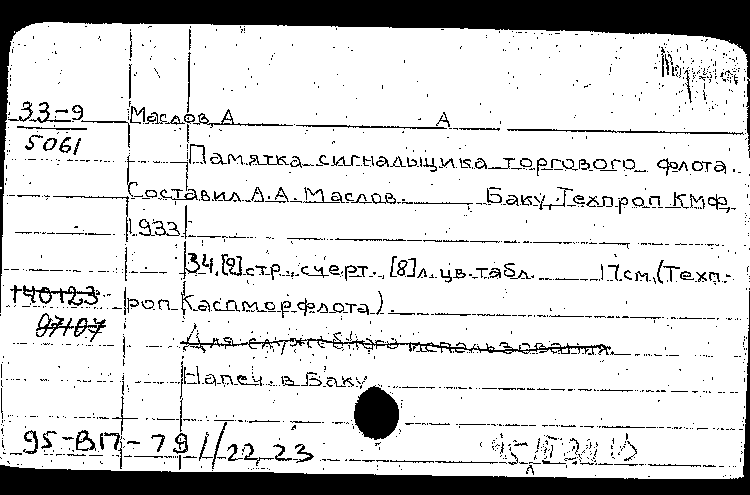 33-9 Маслов, А А
5061
Памятка сигнальщика торгового флота.
Составил А.А. Маслов. Баку, Техпроп КМФ,
1933
34,[2]стр., с черт., [8]л. цв. табл. 17см. (Техп-
140123 роп Каспморфлота).
97107
Для служебного использования.
Напеч. в Баку
95-ВП-79//22, 23